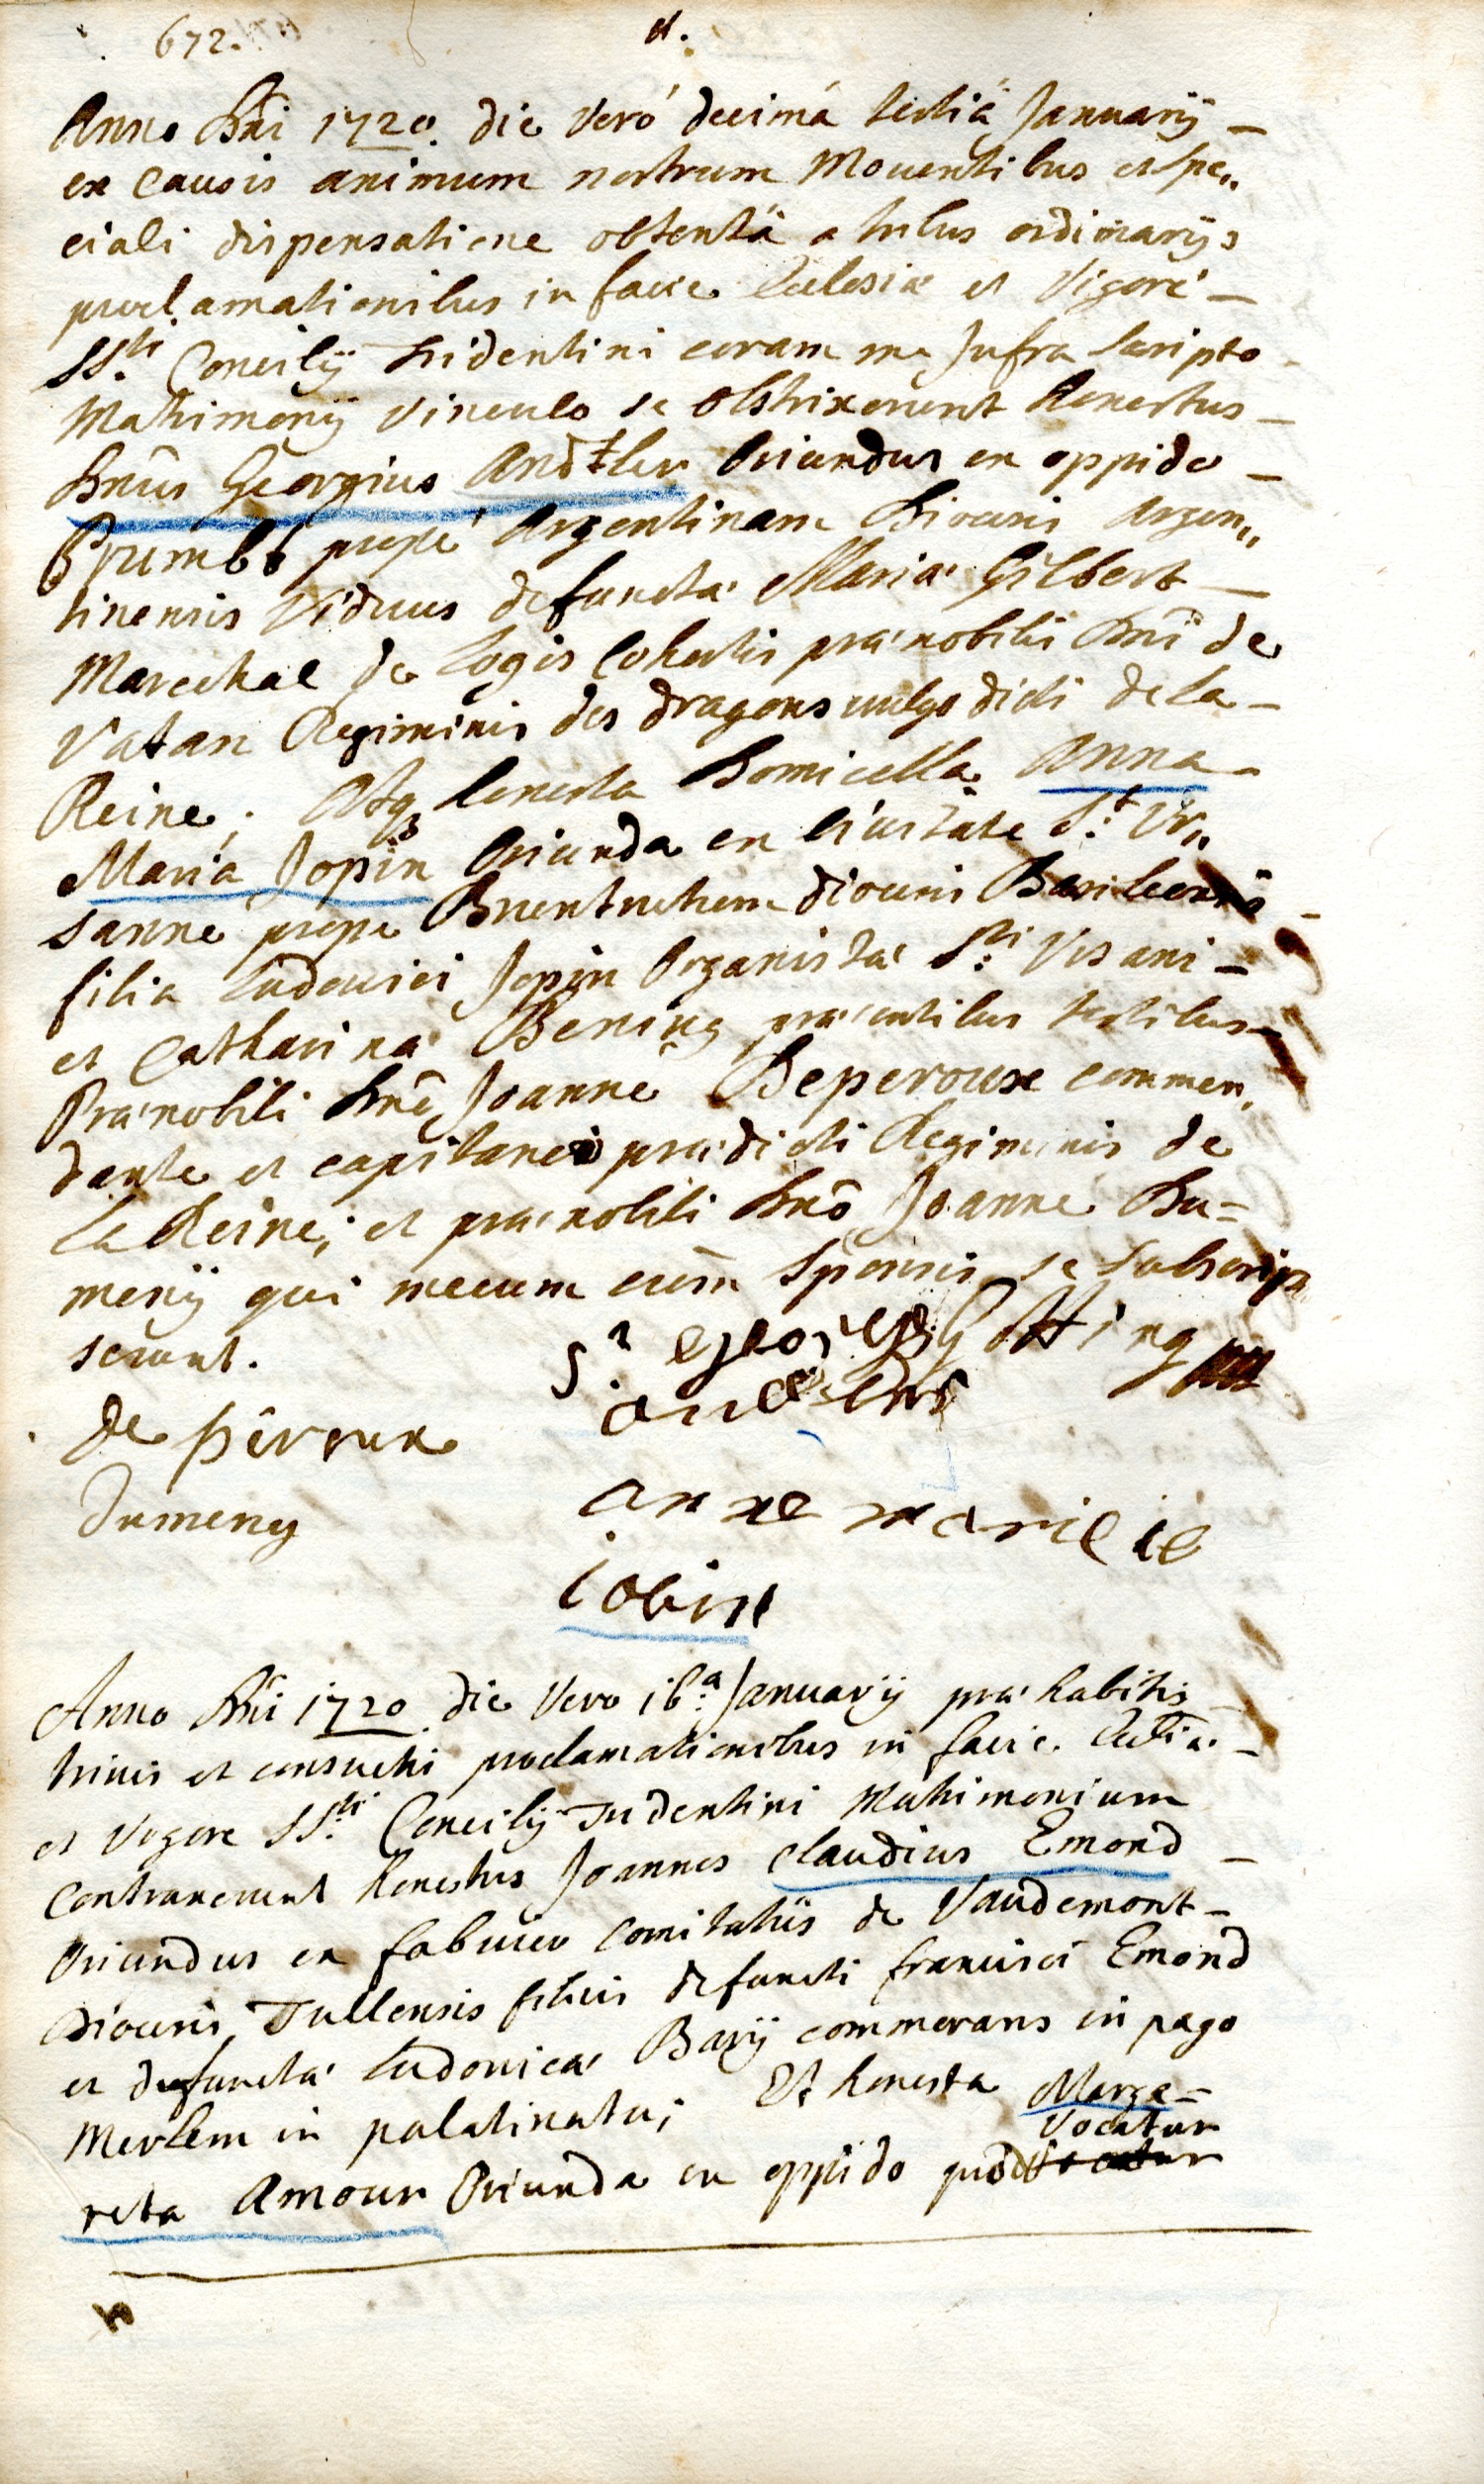 672.
Anno Dni 1720. die Veró decimá tertiá Januarij –
ex Causis animum nostrum Moventibus et spe„
ciali dispensatione obtentá a tribus ordinarijs
proclamationibus in facie Ecclesiæ et Vigore –
SSti Concilij tridentini coram me Infra scripto
Matrimonij vinculo se Obstrixerunt honestus –
Dnus Georgius Andtler Oriundus ex oppido –
Brumbt prope Argentinam Diocesis Argen„
tinensis Viduus defunctæ Mariæ Gilbert –
Marechal de logis Cohortis prænobilis Dni de
Vatan Regiminis des dragons vulgo dicti de la –
Reine; Atq3 honesta Domicella Anna
Maria Jopin Oriunda ex Civitate St Ur„
sanne prope Bruentruhem diocesis Basileensis –
filia ludovici Jopin Organistæ Sti Ursani –
et Catharinæ Bening præsentibus testibus
Prænobili Dno Joanne Deperoux commen„
dante et capitaneo prædicti Regiminis de
la Reine; et prænobili Dno Joanne Du=
menij qui mecum cum Sponsis se subscrip
serunt.
Sr georg
de pèroux
Dumeny
anne marie
iobin
Anno Dni 1720 die Vero 16a Januarij præhabitis
trinis et consuetis proclamationibus in facie Ecclæ –
et Vigore SSti Concilij Tridentini Matrimonium
Contraxerunt honestus Joannes Claudius Emond –
Oriundus ex comitatus de Vaudemont –
Diocesis Tullensis filius defuncti francisci Emond
et defunctæ ludovicæ Barÿ commorans in pago
Merlem in palatinatu; Et honesta Marga=
vocatur
reta Amour Oriunda ex oppido quod